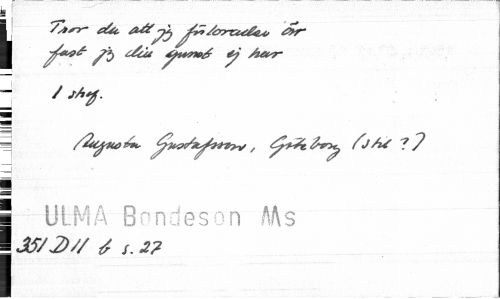 Tror du att jg förtorvelse är
fast jg din gunst ej har
1 strf.
Augusta Gustafsson, Göteborg (stil ?)
ULMA Bondeson Ms
351 D 11 b s. 27